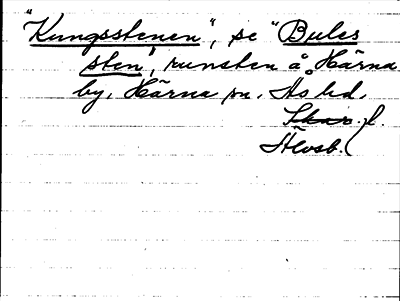 "Kungsstenen", se "Bules
sten", runsten å Härna
by, Härna sn, Ås hd,
Skar. l.
Älvsb.